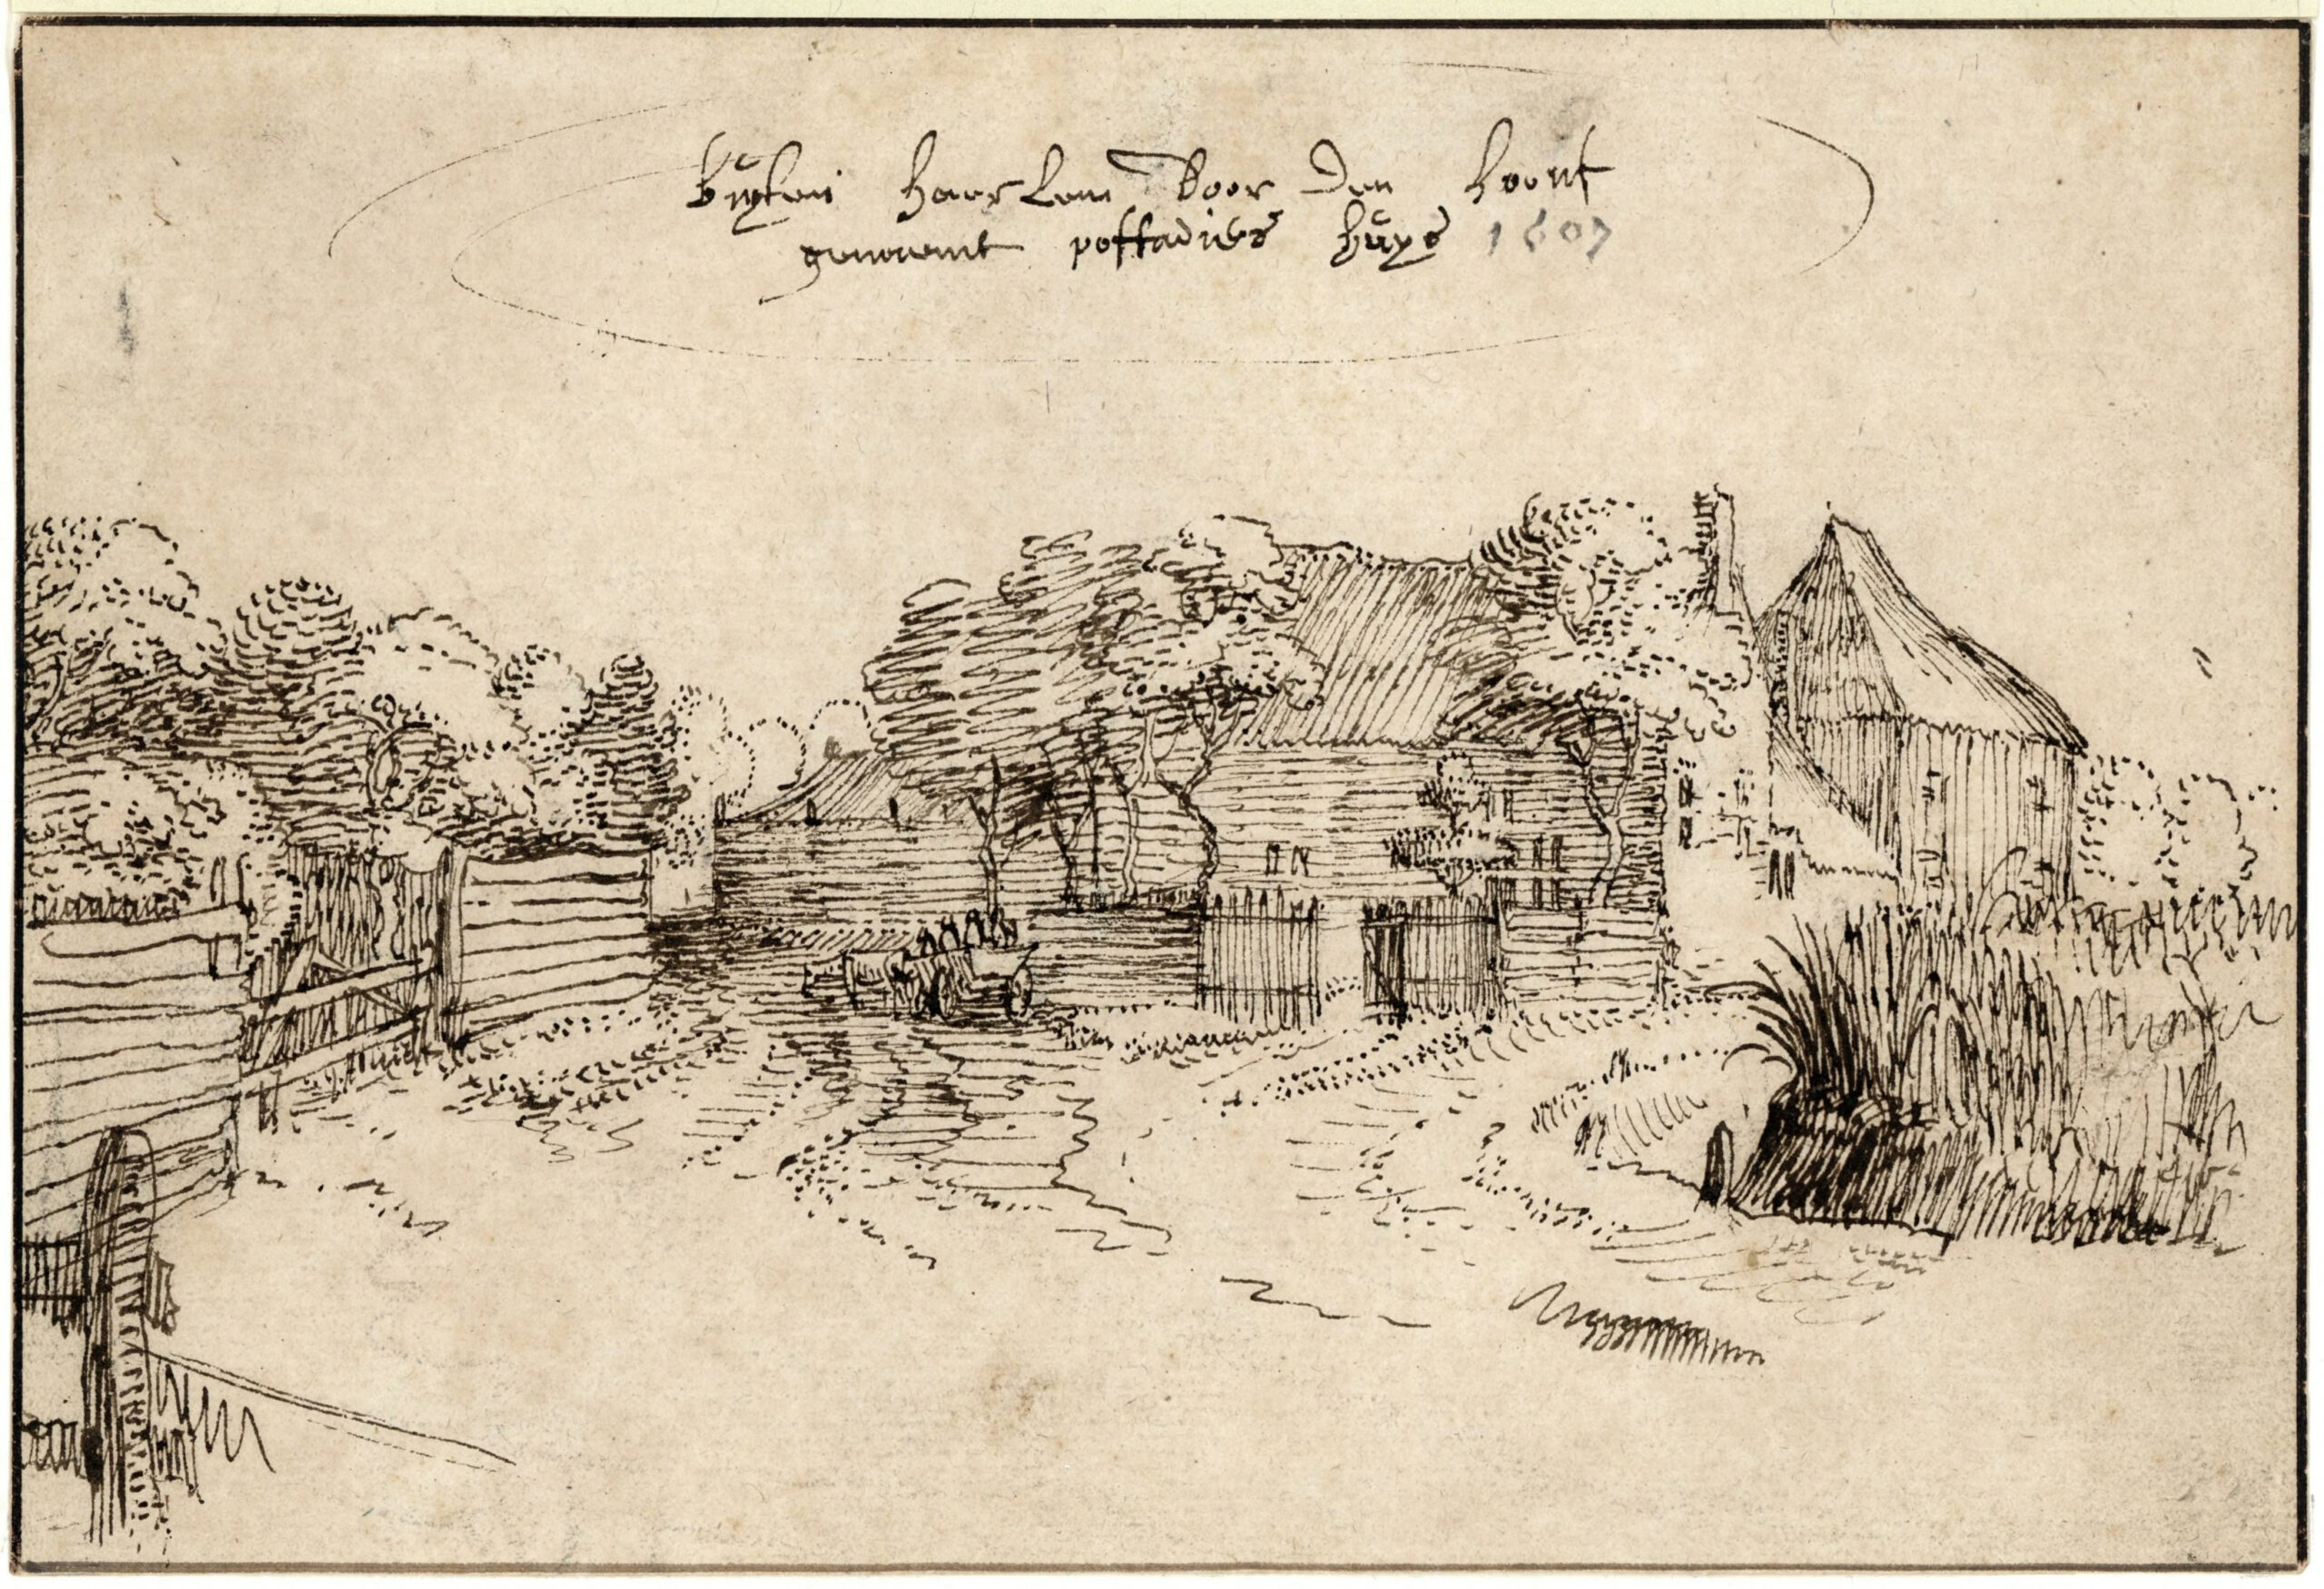 buÿten haerlem voor den hoout
genaemt poffadies hüÿs 1607